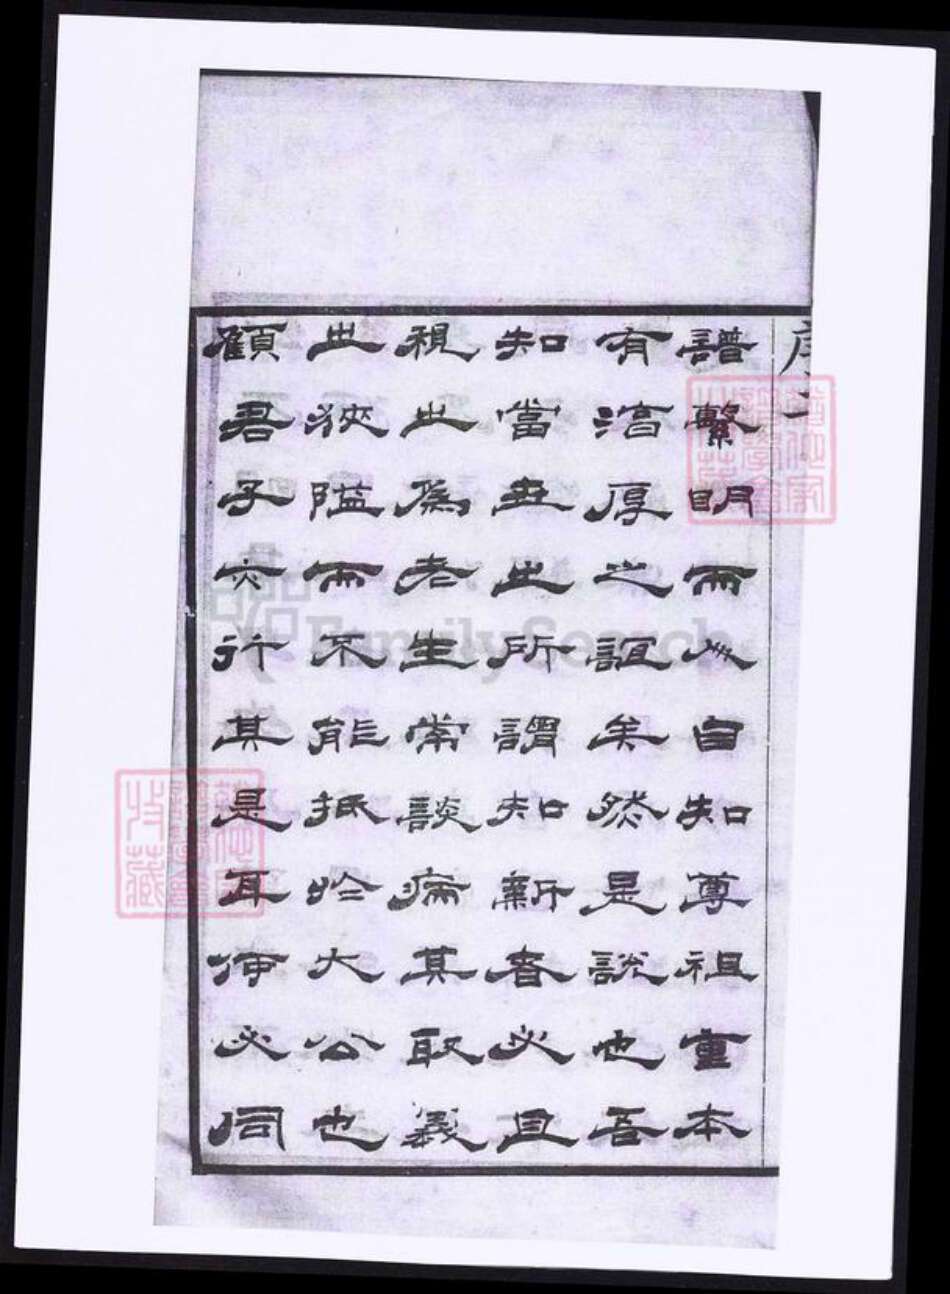 序
譜繫明而以自知尊祖重本
有湻厚之誼矣然是說也吾
知當世之所謂知新者必且
視之為老生常談病其取義
之狹隘而不能抵於大公也
顧君子亦行其是耳何必同
FamilySearch